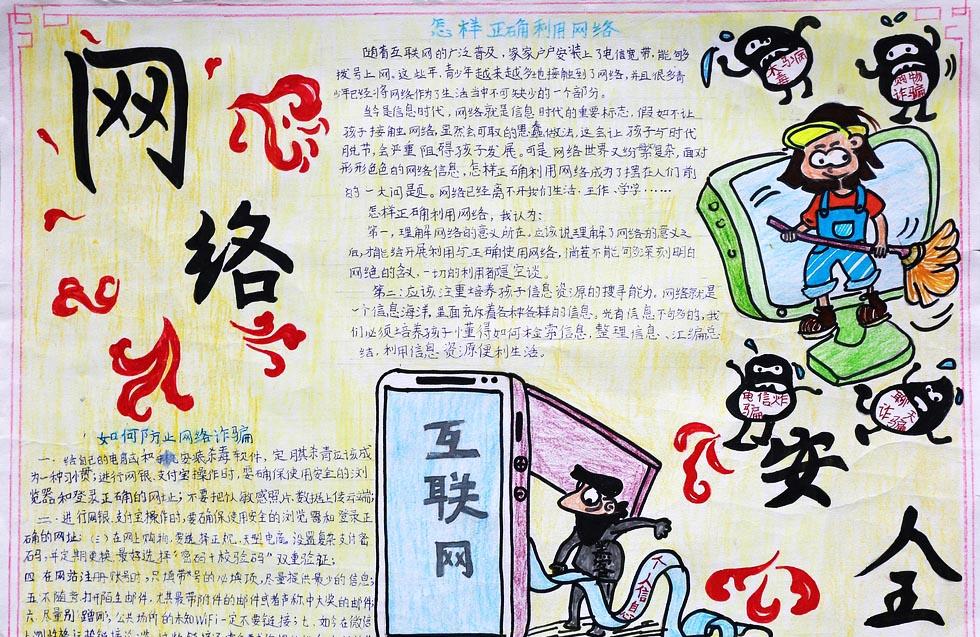 网
络
安
全
怎样正确利用网络
随着互联网的广泛普及，家家户户安装上了电信宽带，能够
拨号上网。这些年，青少年越来越多也接触到了网络，并且很多青
少年已经将网络作为了生活当中不可缺少的一个部分。
当今是信息时代，网络就是信息时代的重要标志，假如不让
孩子接触网络，虽然会可取的愚蠢做法，这会让孩子与时代
脱节，会严重阻碍孩子发展。可是网络世界又纷繁复杂，面对
形形色色的网络信息，怎样正确利用网络成为了摆在人们面前
的一大问题。网络已经离不开我们生活、工作、学学……
怎样正确利用网络，我认为：
第一，理解网络的意义所在。应该说理解了网络的意义之
后，才能给开展利用与正确使用网络，倘若不能 深刻明白
网络的含义，一切的利用都是空谈。
第二：应该注重培养孩子信息资源的搜寻能力。网络就是
一个信息海洋，里面充斥着各种各样的信息。光有信息不够的，我
们必须培养孩子懂得如何检索信息、整理信息、汇编总
结，利用信息资源便利生活。
木马病毒
购物诈骗
电信诈骗
聊天诈骗
如何防止网络诈骗
一、给自己的电脑 和 安装杀毒软件，定期杀毒应该成
为一种习惯；进行网银、支付宝操作时，要确保使用安全的浏
览器和登录正确的网址；不要把认敏感照片、数据上传云端；
二、进行网银、支付宝操作时，要确保使用安全的浏览器和登录正
确的网址；（三）在网上购物，要选择正规、大型电商，设置复杂支付密
码，并定期更换，最好选择“密码＋校验码”双重验证；
四 在网站注册 账号时，尽填带*号的必填项，尽量提供最少的信息；
五 不随意打陌生邮件，尤其最带附件的邮件或者声称中大奖的邮件
六 尽量别“蹭网”，公共场所的未知WiFi一定不要链接；七、如今在微信
互
联
网
个人信息